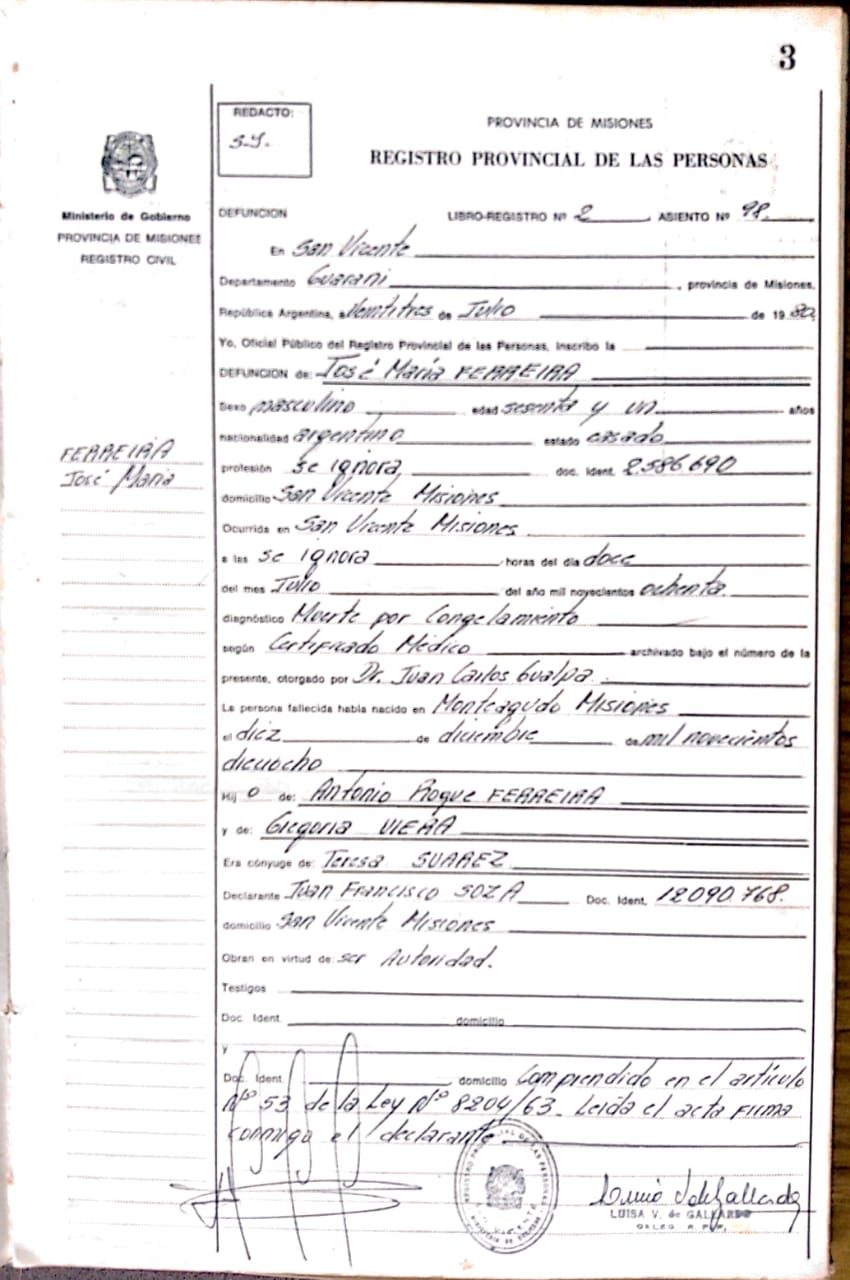 3
REDACTO:
S.J.
PROVINCIA DE MISIONES
REGISTRO PROVINCIAL DE LAS PERSONAS
Ministerio de Gobierno
PROVINCIA DE MISIONES
REGISTRO CIVIL
DEFUNCION LIBRO-REGISTRO Nº 2 ASIENTO Nº 98
En San Vicente
Departamento Guaraní, provincia de Misiones,
República Argentina, a Veintitres de Julio de 1980
Yo, Oficial Público del Registro Provincial de las Personas, inscribo la
DEFUNCION de: José María FERREIRA
Sexo masculino edad sesenta y un años
nacionalidad argentino estado casado
FERREIRA
José María
profesión se ignora doc. Ident. 2.586.690
domicilio San Vicente Misiones
Ocurrida en San Vicente Misiones
a las se ignora horas del día doce
del mes Julio del año mil novecientos ochenta.
diagnóstico Muerte por Congelamiento
según Certificado Médico archivado bajo el número de la
presente, otorgado por Dr. Juan Carlos Gualpa.
La persona fallecida había nacido en Monteagudo Misiones
el diez de diciembre de mil novecientos
dieciocho
Hij o de: Antonio Roque FERREIRA
y de: Gregoria VIERA
Era cónyuge de: Teresa SUAREZ
Declarante Juan Francisco SOZA Doc. Ident. 12.090.768.
domicilio San Vicente Misiones
Obran en virtud de: ser Autoridad.
Testigos
Doc. Ident. domicilio
y
Doc. Ident. domicilio Comprendido en el artículo
Nº 53 de la Ley Nº 8204/63. Leída el acta Firma
conmigo el declarante
LUISA V. de GALLARDO